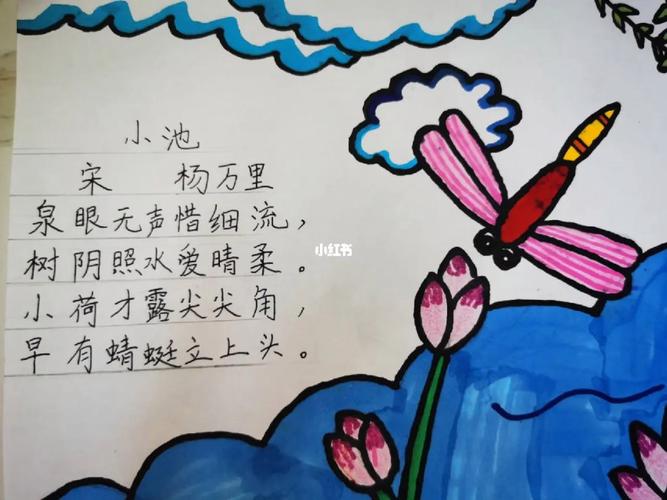 小池
宋 杨万里
泉眼无声惜细流，
树阴照水爱晴柔。
小荷才露尖尖角，
早有蜻蜓立上头。
小红书